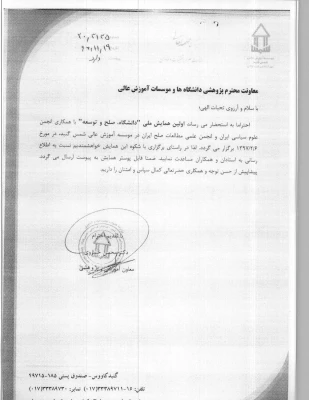 معاونت محترم پژوهشی دانشگاه ها و موسسات آموزش عالی
با سلام و آرزوی تحیات الهی؛
احتراما به استحضار می رساند اولین همایش ملی "دانشگاه، صلح و توسعه" با همکاری انجمن
علوم سیاسی ایران و انجمن علمی مطالعات صلح ایران در موسسه آموزش عالی شمس گنبد، در مورخ
۱۳۹۷/۲/۶ برگزار می گردد. لذا در راستای برگزاری با شکوه این همایش خواهشمندیم نسبت به اطلاع
رسانی به استادان و همکاران مساعدت نمایید. ضمنا فایل پوستر همایش به پیوست ارسال می گردد.
پیشاپیش از حسن توجه و همکاری حضرتعالی کمال سپاس و امتنان را داریم.
با تقدیم احترام
معاون آموزشی و پژوهشی
گنبدکاووس- صندوق پستی ۱۸۵-۴۹۷۱۵
تلفن: ۱۶-۳۳۳۸۹۷۱۱(۰۱۷) نمابر: ۳۳۳۸۹۷۳۰(۰۱۷)